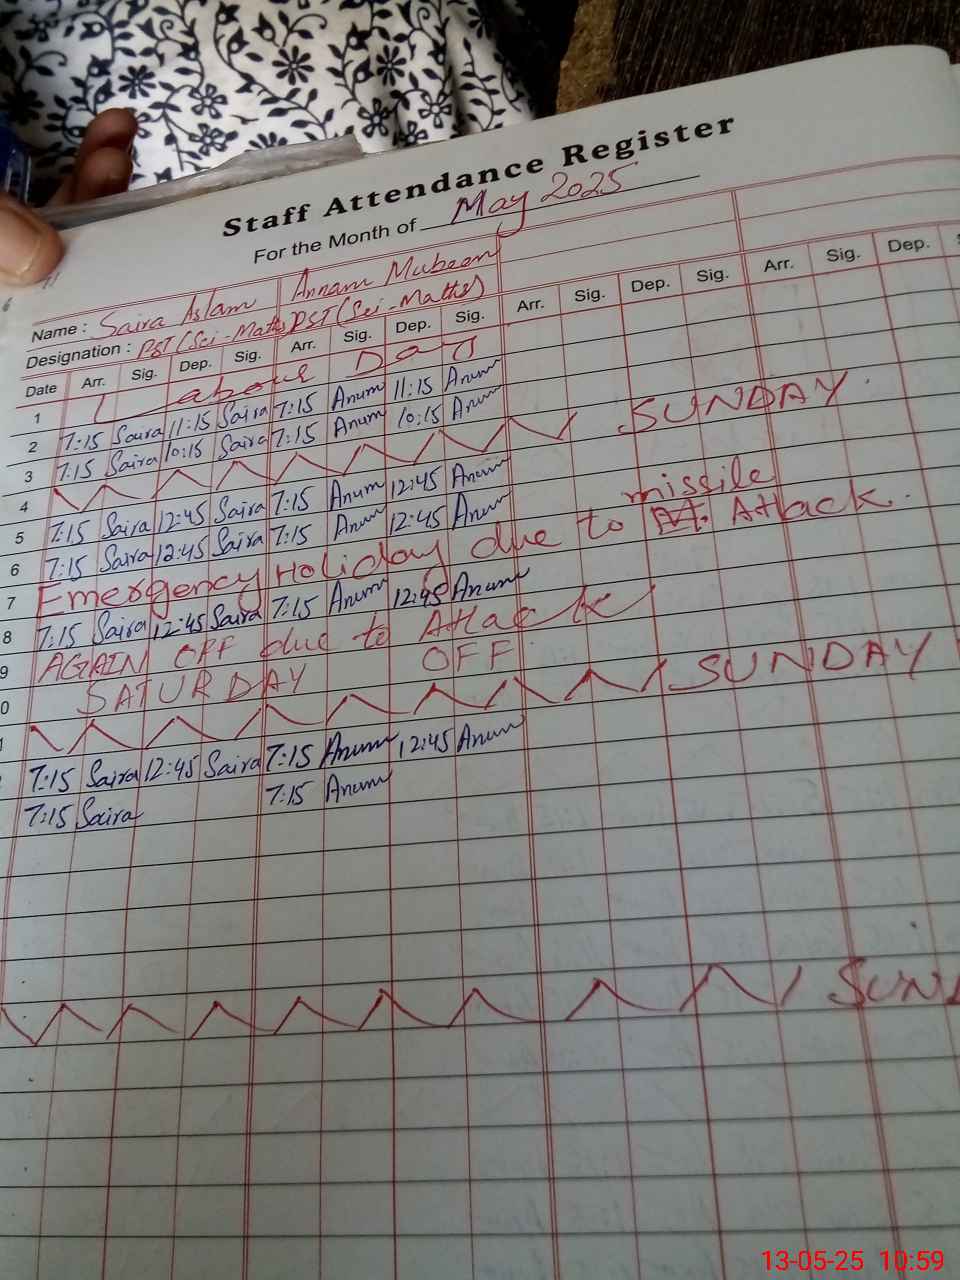 Staff Attendance Register
For the Month of May 2025
Name : Saira Aslam Annam Mubeen
Designation : PST (Sci-Maths) PST (Sci-Maths)
Date Arr. Sig. Dep. Sig. Arr. Sig. Dep. Sig. Arr. Sig. Dep. Sig. Arr. Sig. Dep.
1 Labour Day
2 7:15 Saira 11:15 Saira 7:15 Anum 11:15 Anum
3 7:15 Saira 10:15 Saira 7:15 Anum 10:15 Anum
4 SUNDAY
5 7:15 Saira 12:45 Saira 7:15 Anum 12:45 Anum
6 7:15 Saira 12:45 Saira 7:15 Anum 12:45 Anum
7 Emergency Holiday due to missile Attack.
8 7:15 Saira 12:45 Saira 7:15 Anum 12:45 Anum
9 AGAIN OFF due to Attack
0 SATURDAY OFF
1 SUNDAY
7:15 Saira 12:45 Saira 7:15 Anum 12:45 Anum
7:15 Saira 7:15 Anum
SUND
13-05-25 10:59